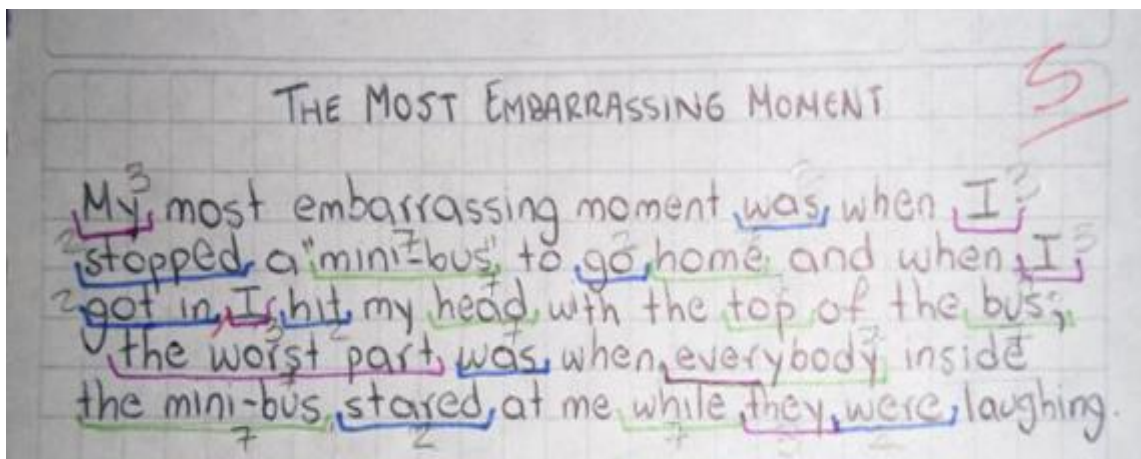 THE MOST EMBARRASSING MOMENT
5
My most embarrassing moment was when I
stopped a "mini-bus" to go home and when I
got in, I hit my head with the top of the bus;
the worst part was when everybody inside
the mini-bus stared at me while they were laughing.